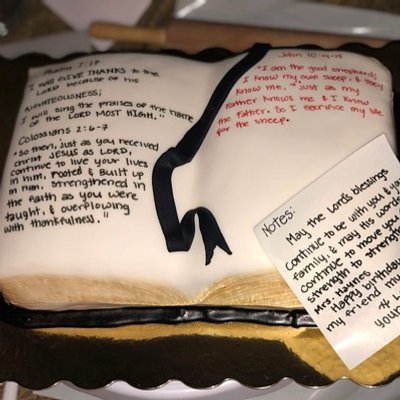 Psalm 7:17
I will GIVE THANKS to the
LORD because of HIS
RIGHTEOUSNESS;
I will sing the praises of the name
of the LORD MOST HIGH."
Colossians 2:6-7
"So then, just as you received
Christ JESUS as LORD,
continue to live your lives
in him, rooted & built up
in him, strengthened in
the faith as you were
taught, & overflowing
with thankfulness."
John 10:14-15
"I am the good shepherd;
I know my own sheep, & they
know me, "just as my
Father knows me & I know
the Father. So I sacrifice my life
for the sheep.
Notes:
May the Lord's blessings
continue to be with you & your
family, & may His words
continue to move you
strength to strength
Mrs. Haynes
Happy birthday
my friend